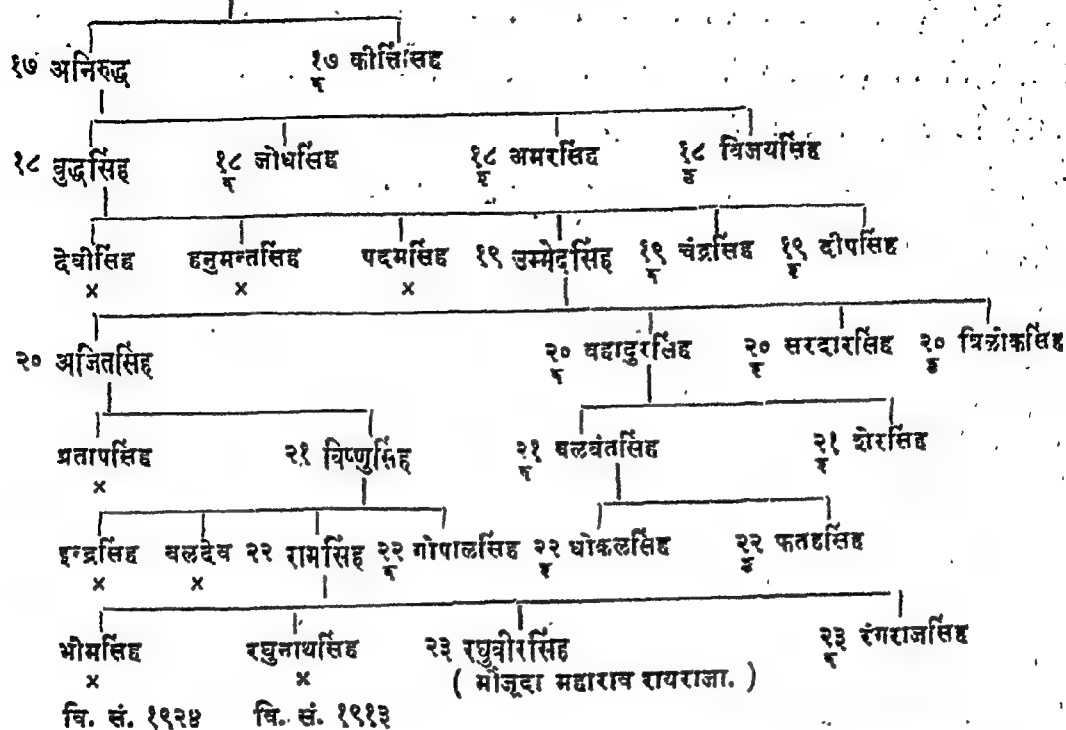 १७ अनिरुद्ध १७ कीर्त्तिसिंह
१८ बुद्धसिंह १८ जोधसिंह १८ अमरसिंह १८ विजयसिंह
देवीसिंह हनुमन्तसिंह पदमसिंह १९ उम्मेदसिंह १९ चंद्रसिंह १९ दीपसिंह
× × ×
२० अजितसिंह २० बहादुरसिंह २० सरदारसिंह २० त्रिलोकसिंह
प्रतापसिंह २१ विष्णुसिंह २१ बलवंतसिंह २१ शेरसिंह
×
इन्द्रसिंह बलदेव २२ रामसिंह २२ गोपालसिंह २२ धोकलसिंह २२ फतहसिंह
× ×
भीमसिंह रघुनाथसिंह २३ रघुवीरसिंह २३ रंगराजसिंह
× × ( मौजूदा महाराव रायराजा. )
वि. सं. १९२४ वि. सं. १९१३